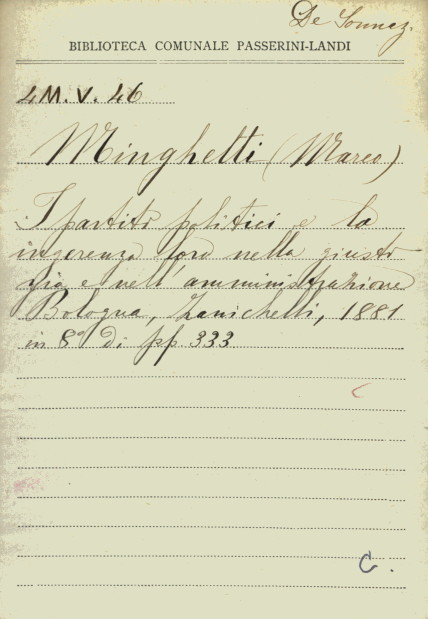 De
BIBLIOTECA COMUNALE PASSERINI-LANDI
4M.V.46
Minghetti (Marco)
I partiti politici e la
ingerenza loro nella giusti
zia e nell'amministrazione
Bologna, Zanichelli, 1881
in 8º di pp. 333
C.